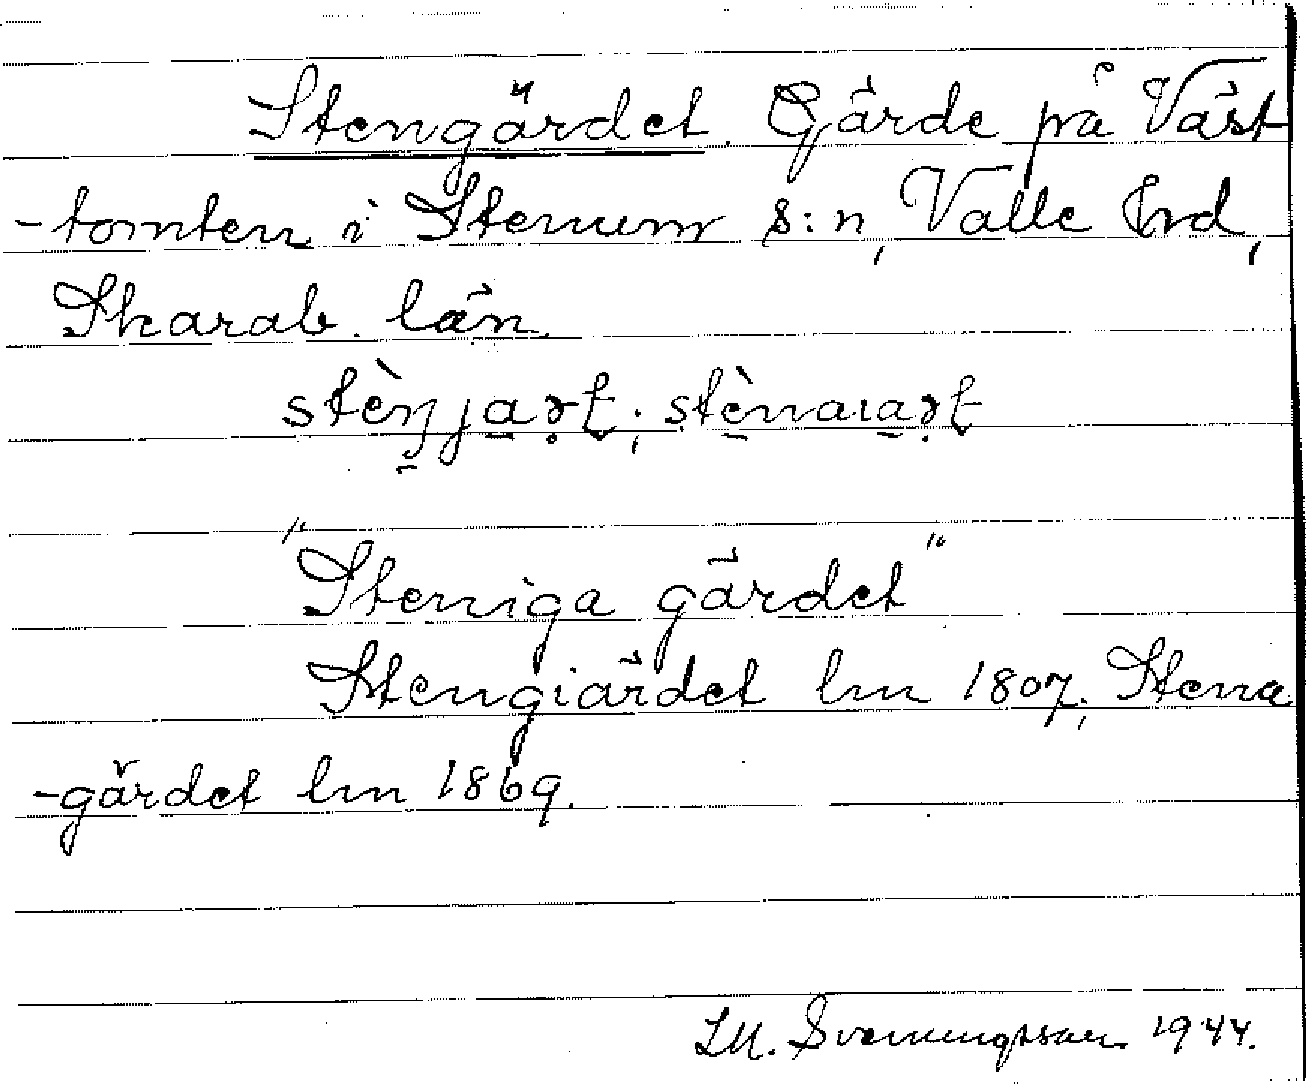 Stengärdet. Gärde på Väst
-tomten i Stenum s:n, Valle hrd,
Skarab. län.
"Steniga gärdet"
Stengiärdet lm 1807; Stena
-gärdet lm 1869.
1944.